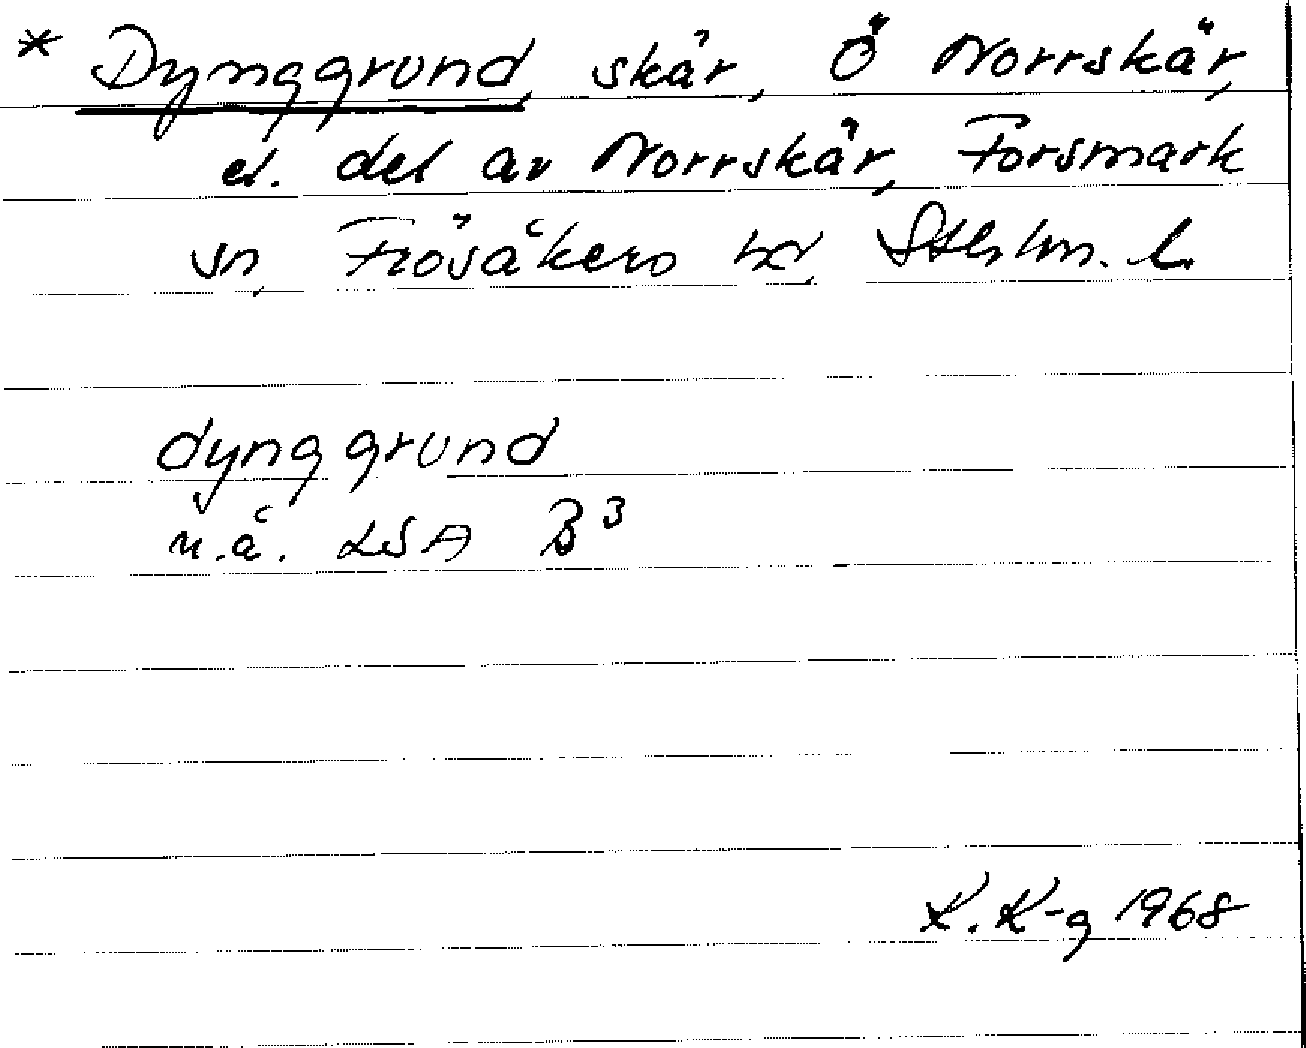 * Dynggrund, skär, Ö Norrskär,
el. del av Norrskär, Forsmark
sn, Frösåkers hd, Sthlm. l.
dynggrund
n.å. LSA B³
K. K-g 1968